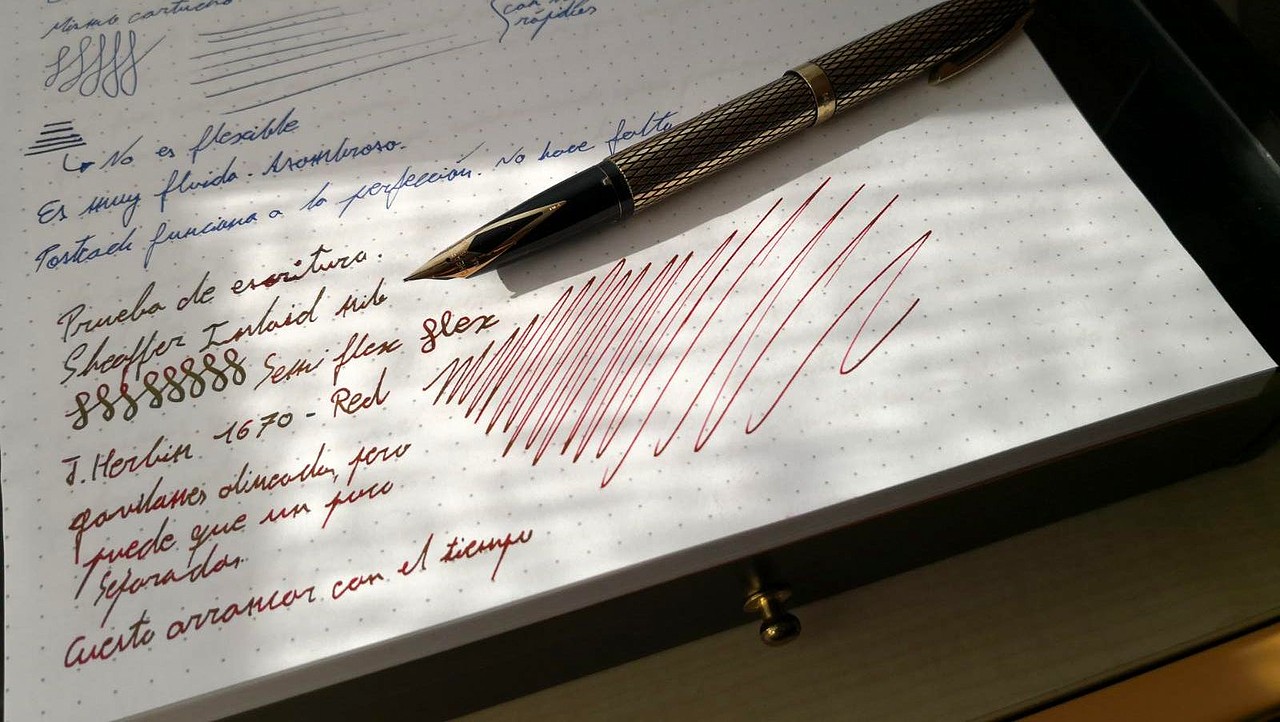 mismo cartucho
rápidos
No es flexible
Es muy fluida. Asombroso.
Posteado funciona a la perfección. No hace falta
Prueba de escritura.
Sheaffer Inlaid nib
Semi flex flex
J. Herbin 1670 - Red
gavilanes alineados, pero
puede que un poco
separados.
Cuesta arrancar con el tiempo